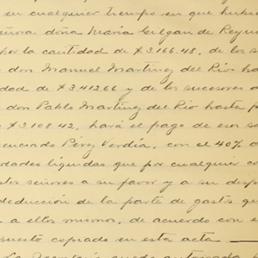 en cualquier tiempo en que hubie
señora doña María Gilgan de Reynu
por la cantidad de $3166.48, de los s
don Manuel Martinez del Rio hasta
dad de $3412.66 y de los sucesores d
don Pablo Martinez del Rio hasta p
$3108.42, hará el pago de eso so
enciado Pérez Verdia, con el 40% d
dades líquidas que por cualquier co
stos señores a su favor y a su desp
deducción de la parte de gastos que
a ellos mismos, de acuerdo con e
puesto copiado en esta acta